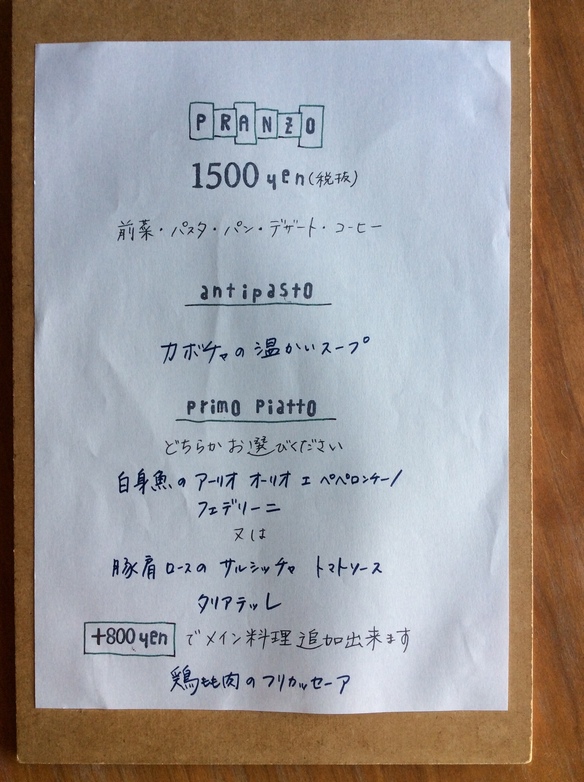 PRANZO
1500 yen(税抜)
前菜・パスタ・パン・デザート・コーヒー
antipasto
カボチャの温かいスープ
primo piatto
どちらかお選びください
白身魚のアーリオ オーリオ エ ペペロンチーノ
フェデリーニ
又は
豚肩ロースのサルシッチャ トマトソース
タリアテッレ
+800yen でメイン料理追加出来ます
鶏もも肉のフリカッセーア